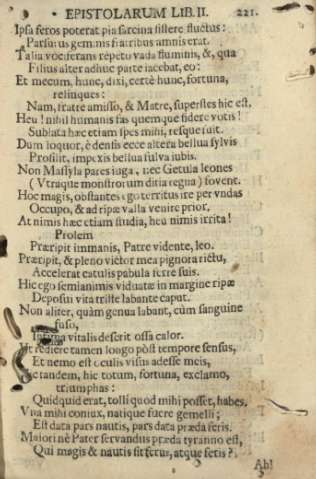 EPISTOLARUM LIB. II. 221.
Ipsa feros poterat pia sarcina sistere fluctus:
Parsurus gemmis fratribus amnis erat.
Talia vociferans repeto vada fluminis, &, qua
Filius alter adhuc parte jacebat, eo:
Et mecum, hunc, dixi, certè hunc, fortuna,
relinques:
Nam, fratre amisso, & Matre, superstes hic est.
Heu! nihil humanis fas quemque fidere votis!
Sublata hæc etiam spes mihi, resque fuit.
Dum loquor, è densis ecce altera bellua sylvis
Prosilit, impexis bellua fulva jubis.
Non Massyla pares juga, nec Getula leones
(Utraque monstrorum ditia regna) fovent.
Hoc magis, obstantes ego territus ire per undas
Occupo, & ad ripæ valla venire prior.
At nimis hæc etiam studia, heu nimis irrita!
Prolem
Præripit immanis, Patre vidente, leo.
Præripit, & pleno victor mea pignora rictu,
Accelerat catulis pabula ferre suis.
Hic ego semianimis viduatæ in margine ripæ
Deposui vita triste labante caput.
Non aliter, quàm genua labant, cùm sanguine
fuso,
vitalis deserit ossa calor.
Ut rediere tamen longo pòst tempore sensus,
Et nemo est oculis visus adesse meis,
tandem, hic totum, fortuna, exclamo,
triumphas:
Quidquid erat, tolli quod mihi posset, habes.
Una mihi coniux, natique fuere gemelli;
Est data pars nautis, pars data præda feris.
Maiori nè Pater servandus præda tyranno est,
Qui magis & nautis sit ferus, atque feris?
Ah!